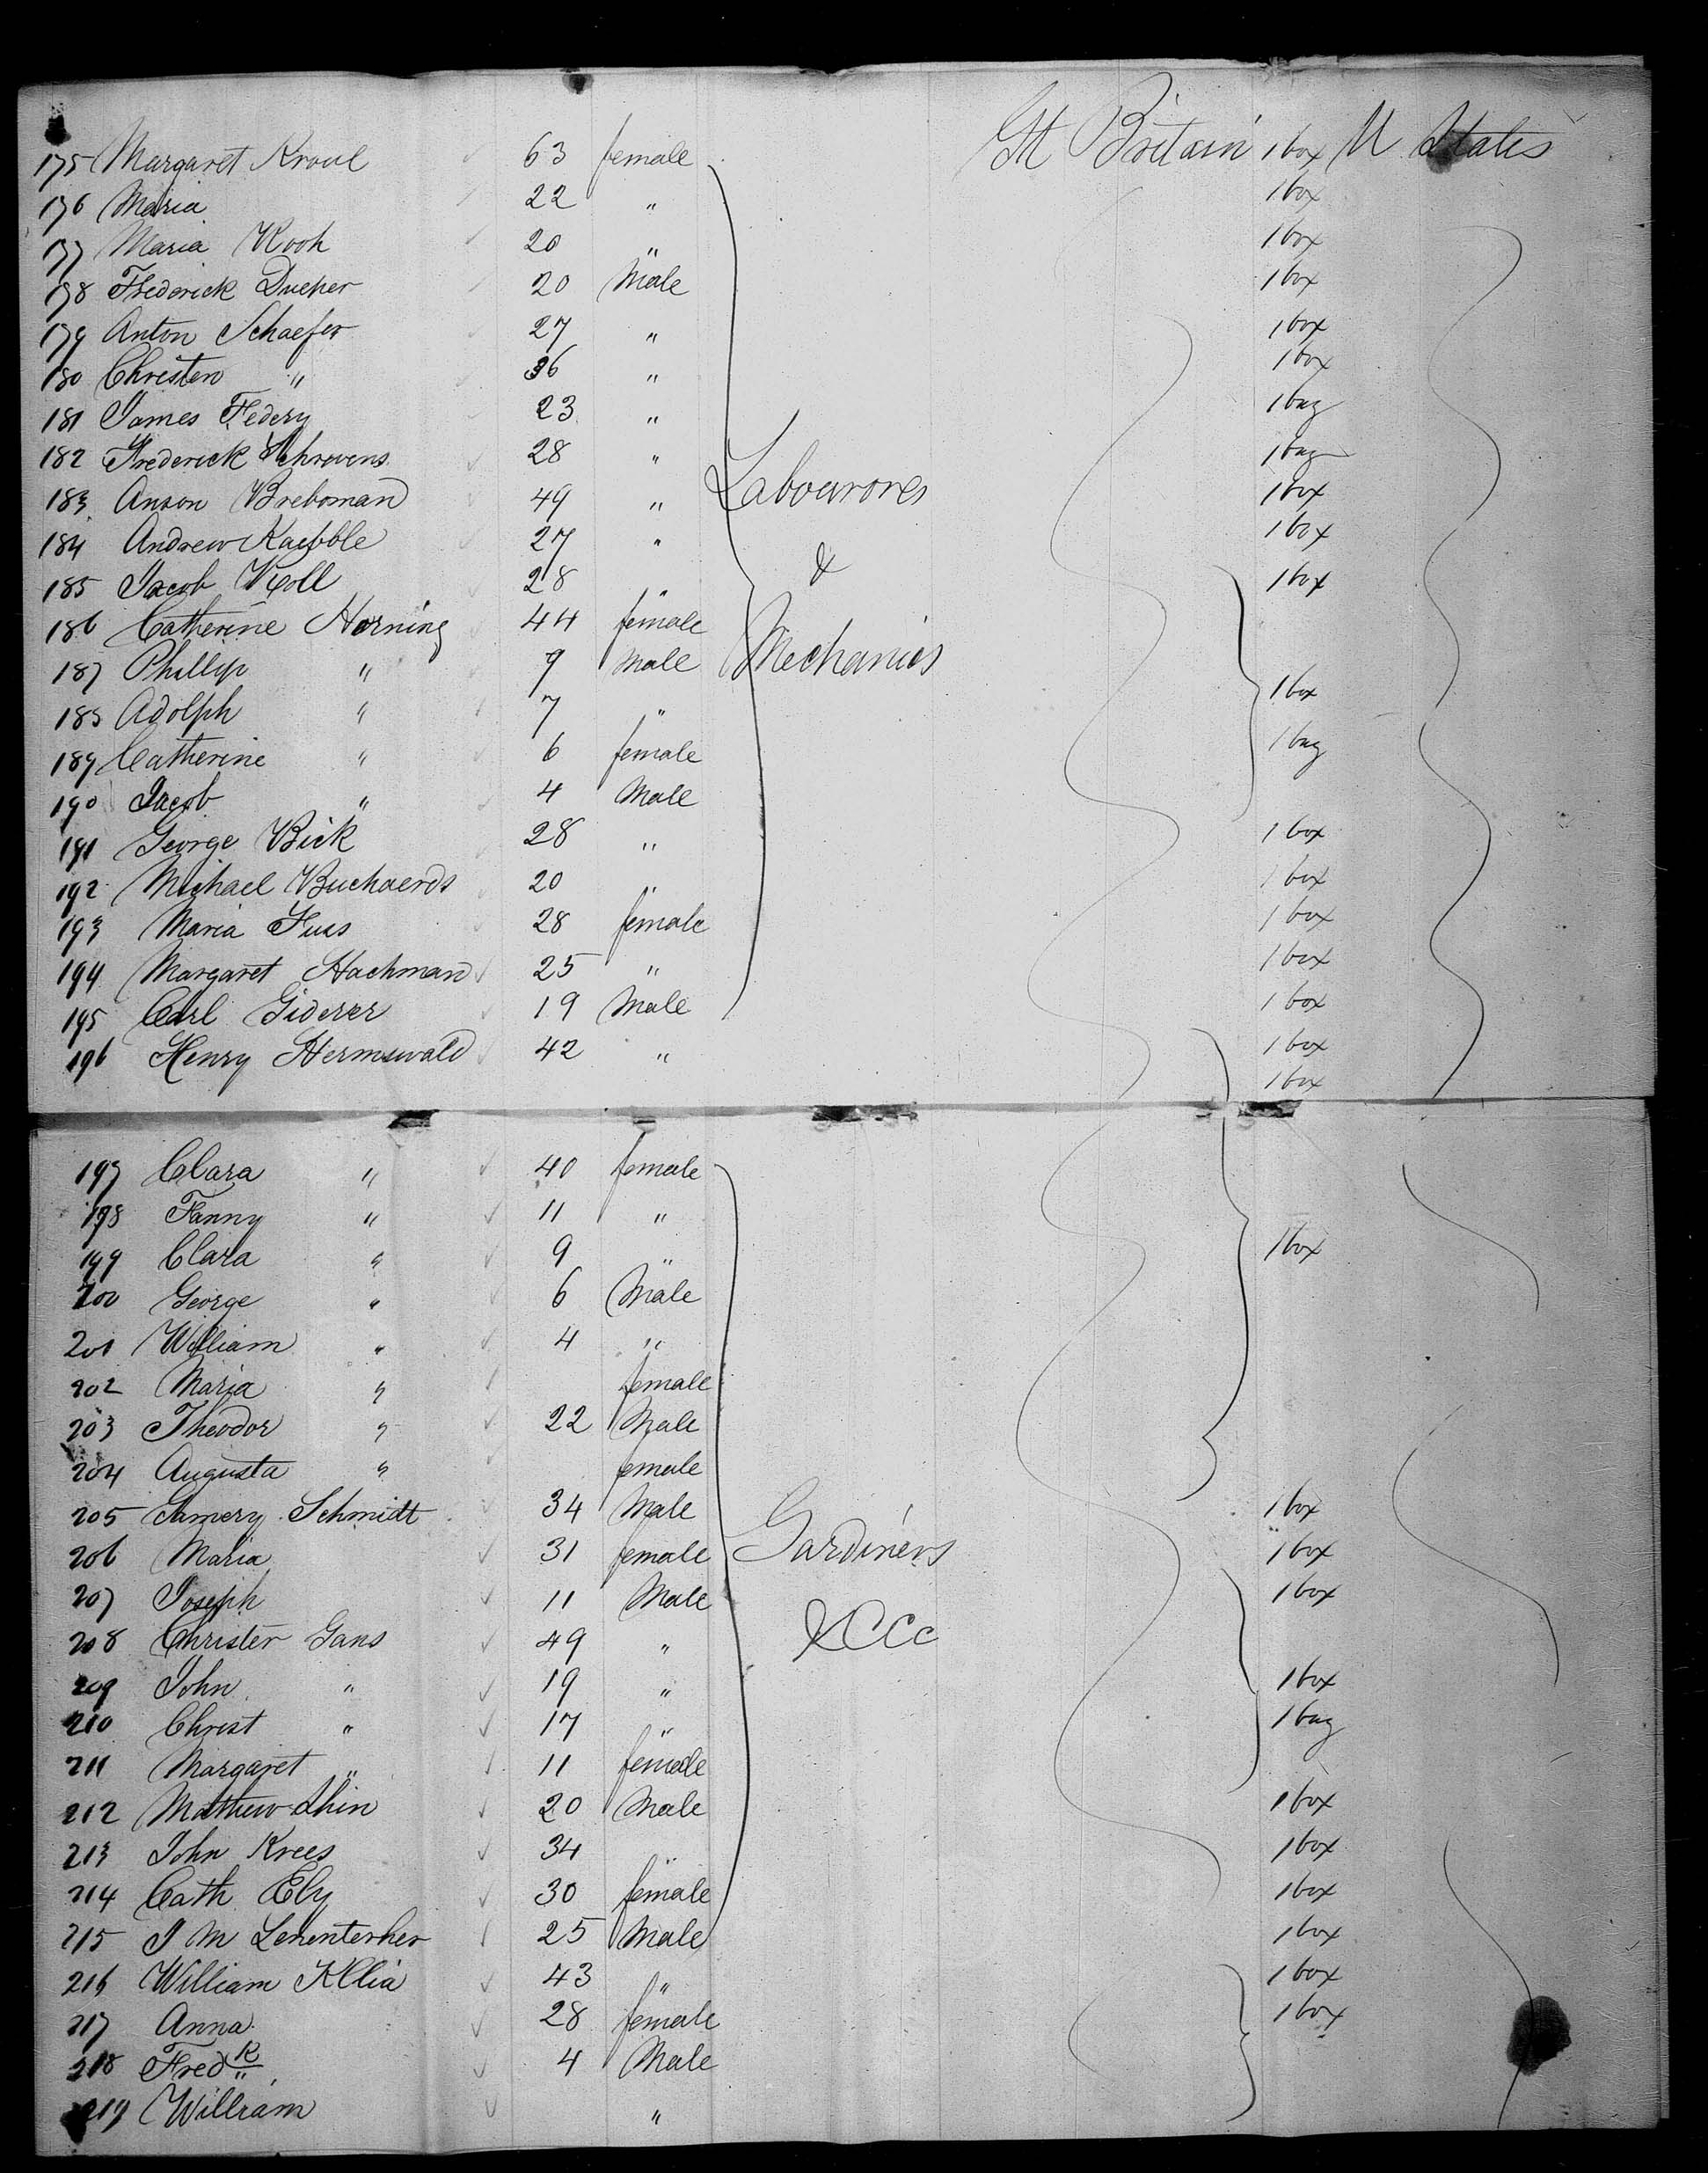 175 Margaret Kroul 63 female Gt Britain 1 box U States
176 Maria 22 " 1 box
177 Maria Kooh 20 " 1 box
178 Frederick Dueper 20 Male 1 box
179 Anton Schaefer 27 " 1 box
180 Christen " 36 " 1 box
181 James Federy 23 " 1 bag
182 Frederick Schrevens 28 " 1 bag
183 Anson Breboman 49 " Labourores 1 box
184 Andrew Kaebble 27 " 1 box
&
185 Jacob Koll 28 " 1 box
186 Catherine Horning 44 female
187 Phillip " 9 Male Mechanics 1 box
188 Adolph " 7 "
189 Catherine " 6 female 1 bag
190 Jacob " 4 Male
191 George Bick 28 " 1 box
192 Michael Buchaerds 20 " 1 box
193 Maria Fuss 28 female 1 box
194 Margaret Hachman 25 " 1 box
195 Carl Giderer 19 Male 1 box
196 Henry Hermswald 42 " 1 box
1 box
197 Clara " 40 female
198 Fanny " 11 "
199 Clara " 9 " 1 box
200 George " 6 Male
201 William " 4 "
202 Maria " female
203 Theodor " 22 Male
204 Augusta " female
205 Schmidt 34 Male 1 box
206 Maria 31 female Gardiners 1 box
207 Joseph 11 Male 1 box
208 Christer Gans 49 " &CCc
209 John " 19 " 1 box
210 Christ " 17 " 1 bag
211 Margaret " 11 female
212 Mathew Shin 20 Male 1 box
213 John Krees 34 " 1 box
214 Cath Ely 30 female 1 box
215 J M Lenenterher 25 Male 1 box
216 William Kllia 43 " 1 box
217 Anna 28 female 1 box
218 Fredk 4 Male
219 William "